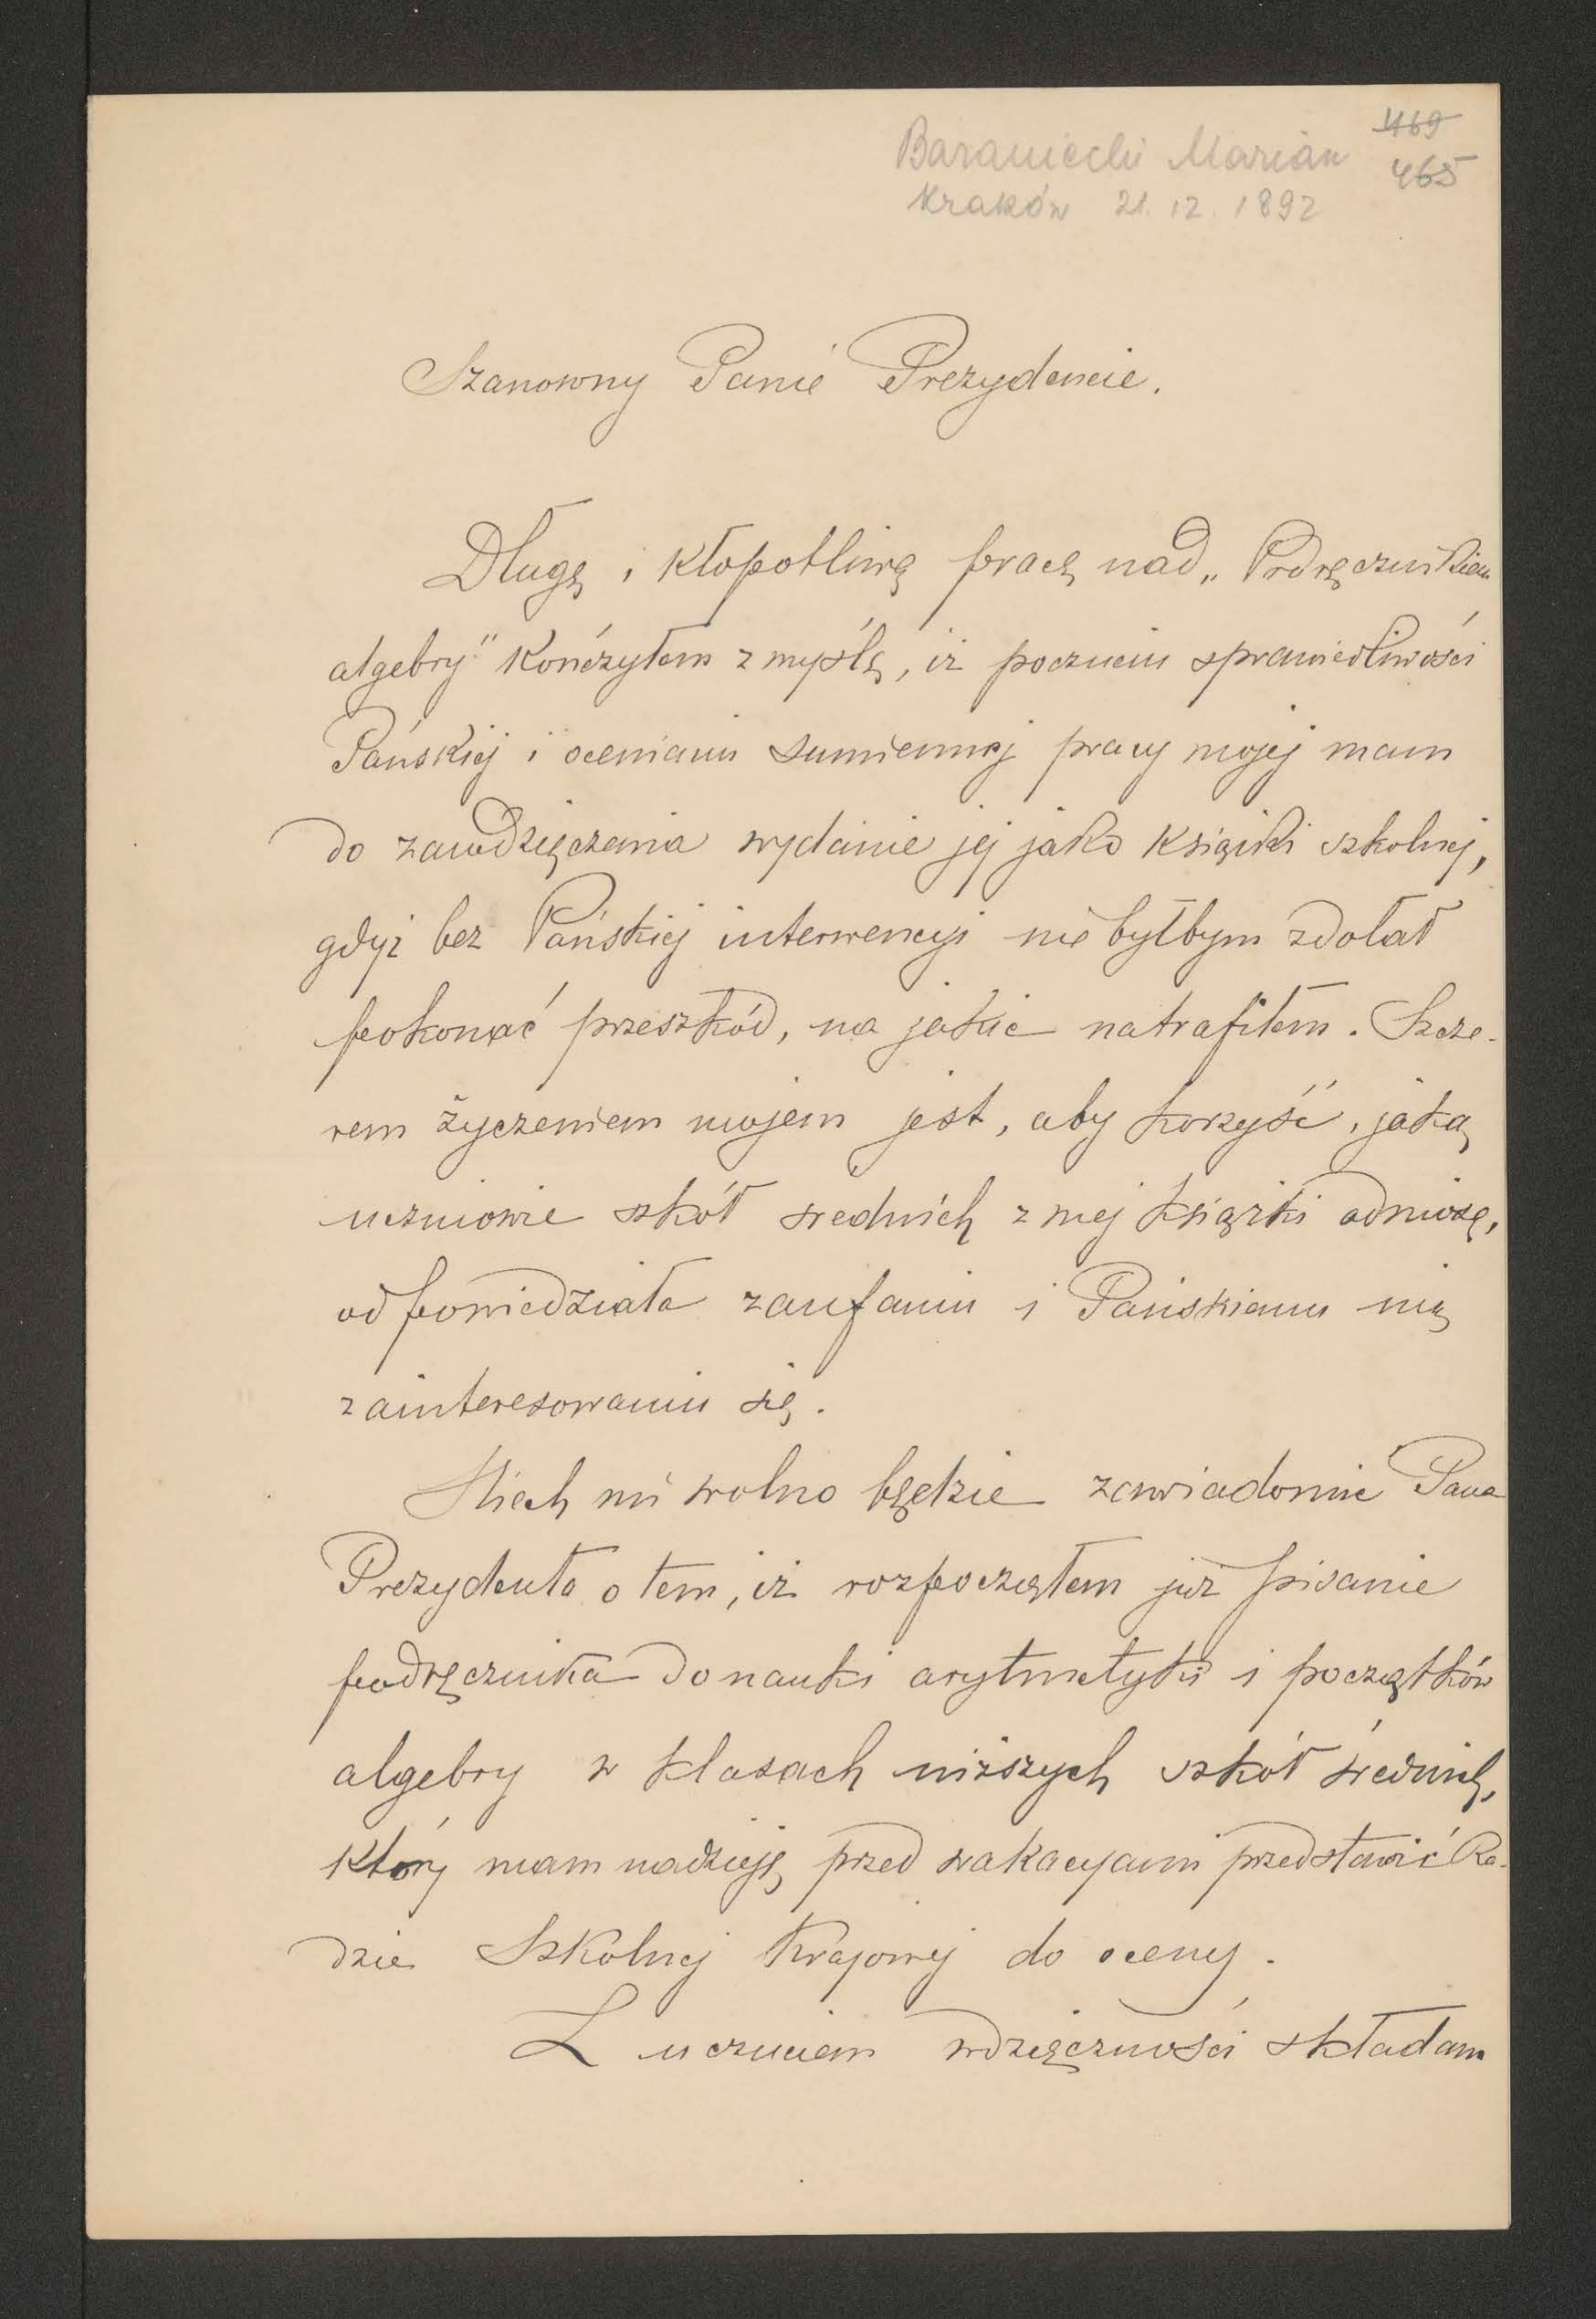 Baraniecki Marian
469
465
Kraków 21. 12. 1892
Szanowny Panie Prezydencie.
Długą i kłopotliwą pracę nad „Podręcznikiem
algebry" kończyłem z myślą, iż poczuciu sprawiedliwości
Pańskiej i ocenianiu sumiennej pracy mojej mam
do zawdzięczenia wydanie jej jako książki szkolnej,
gdyż bez Pańskiej interwencyi nie byłbym zdołał
pokonać przeszkód, na jakie natrafiłem. Szcze-
rem życzeniem mojem jest, aby korzyść, jaką
uczniowie szkół średnich z mej książki odniosą,
odpowiedziała zaufaniu i Pańskiemu nią
zainteresowaniu się.
Niech mi wolno będzie zawiadomić Pana
Prezydenta o tem, iż rozpocząłem już pisanie
podręcznika do nauki arytmetyki i początków
algebry w klasach niższych szkół średnich,
który mam nadzieję przed wakacyami przedstawić Ra-
dzie Szkolnej Krajowej do oceny.
Z uczuciem wdzięczności składam